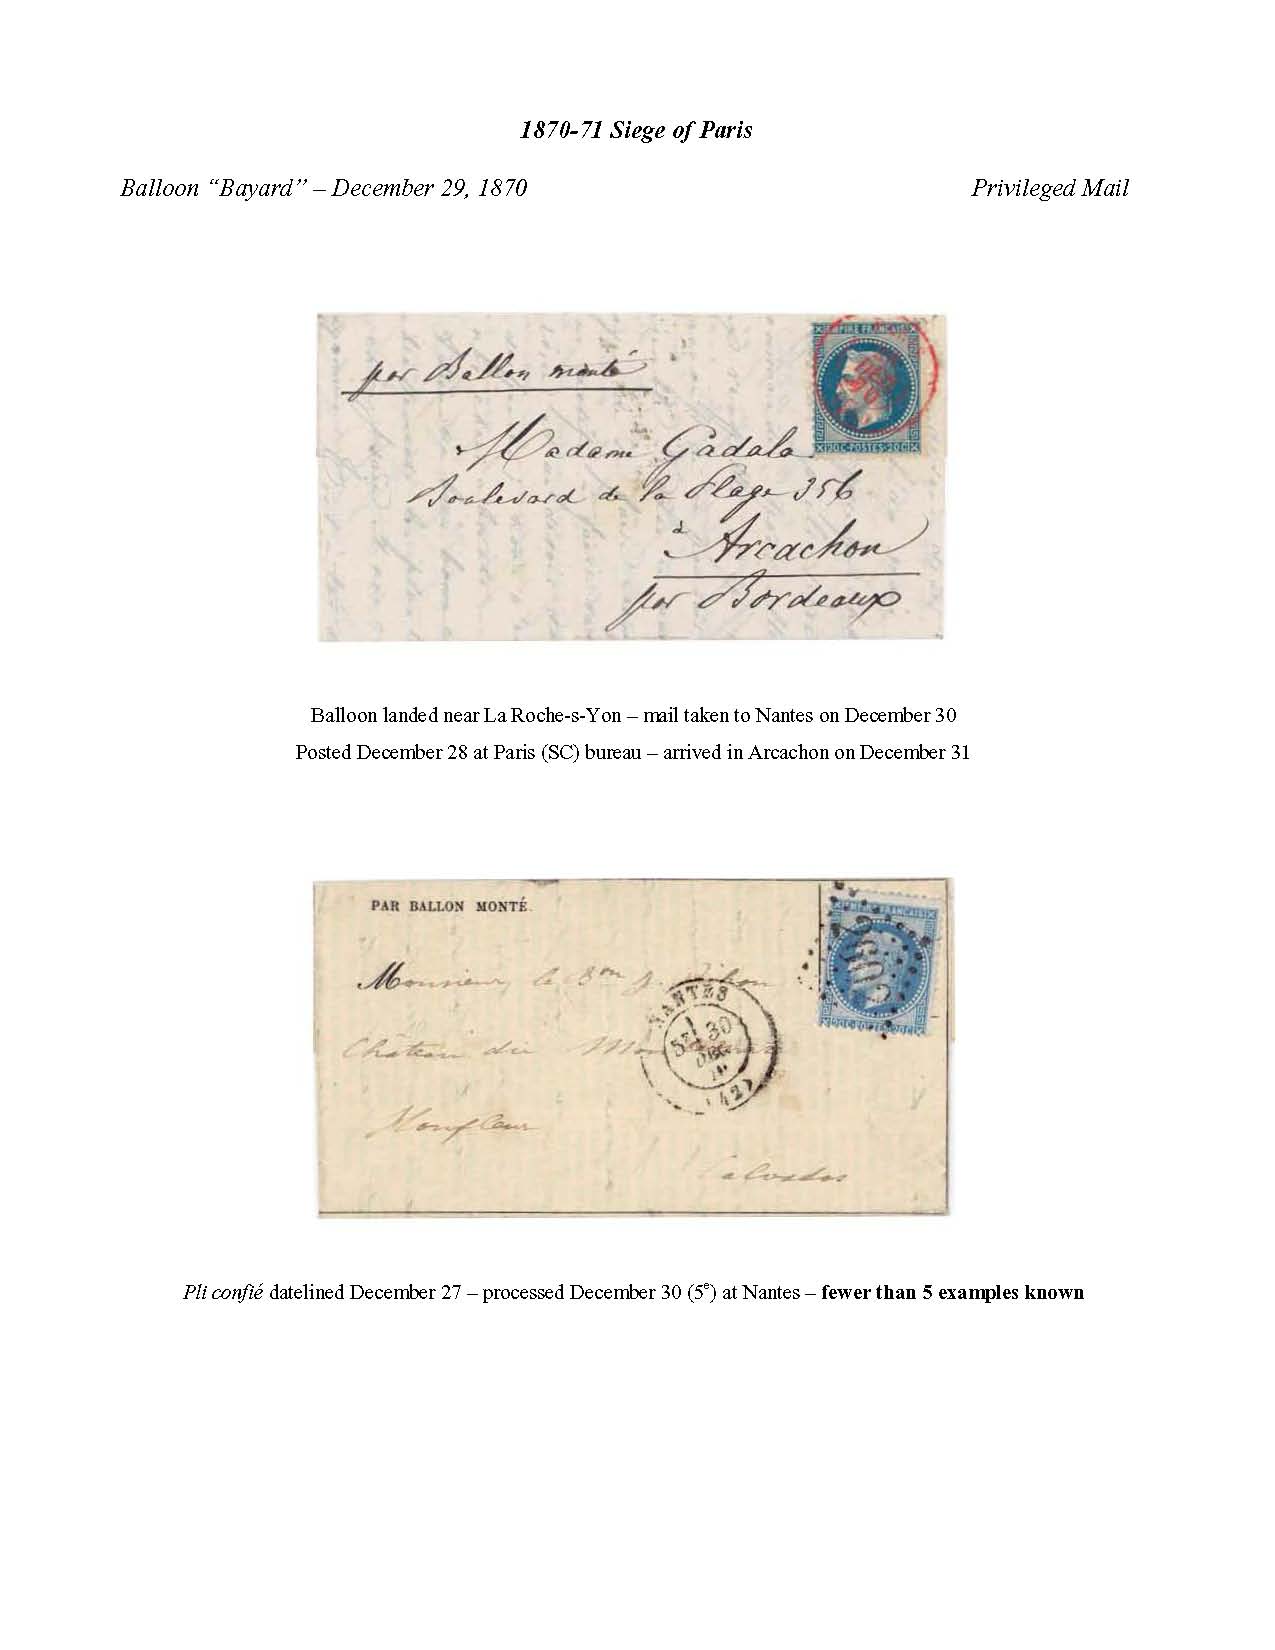 1870-71 Siege of Paris
Balloon “Bayard” – December 29, 1870 Privileged Mail
par Ballon monté
EMPIRE FRANÇAIS
Madame Gadala
Boulevard de la Plage 356
à Arcachon
par Bordeaux
20C·POSTES·20C
Balloon landed near La Roche-s-Yon – mail taken to Nantes on December 30
Posted December 28 at Paris (SC) bureau – arrived in Arcachon on December 31
PAR BALLON MONTÉ.
Monsieur le Bon J.
Château du
Honfleur
Calvados
NANTES
5E 30
DEC.
70
(42)
Pli confié datelined December 27 – processed December 30 (5e) at Nantes – fewer than 5 examples known